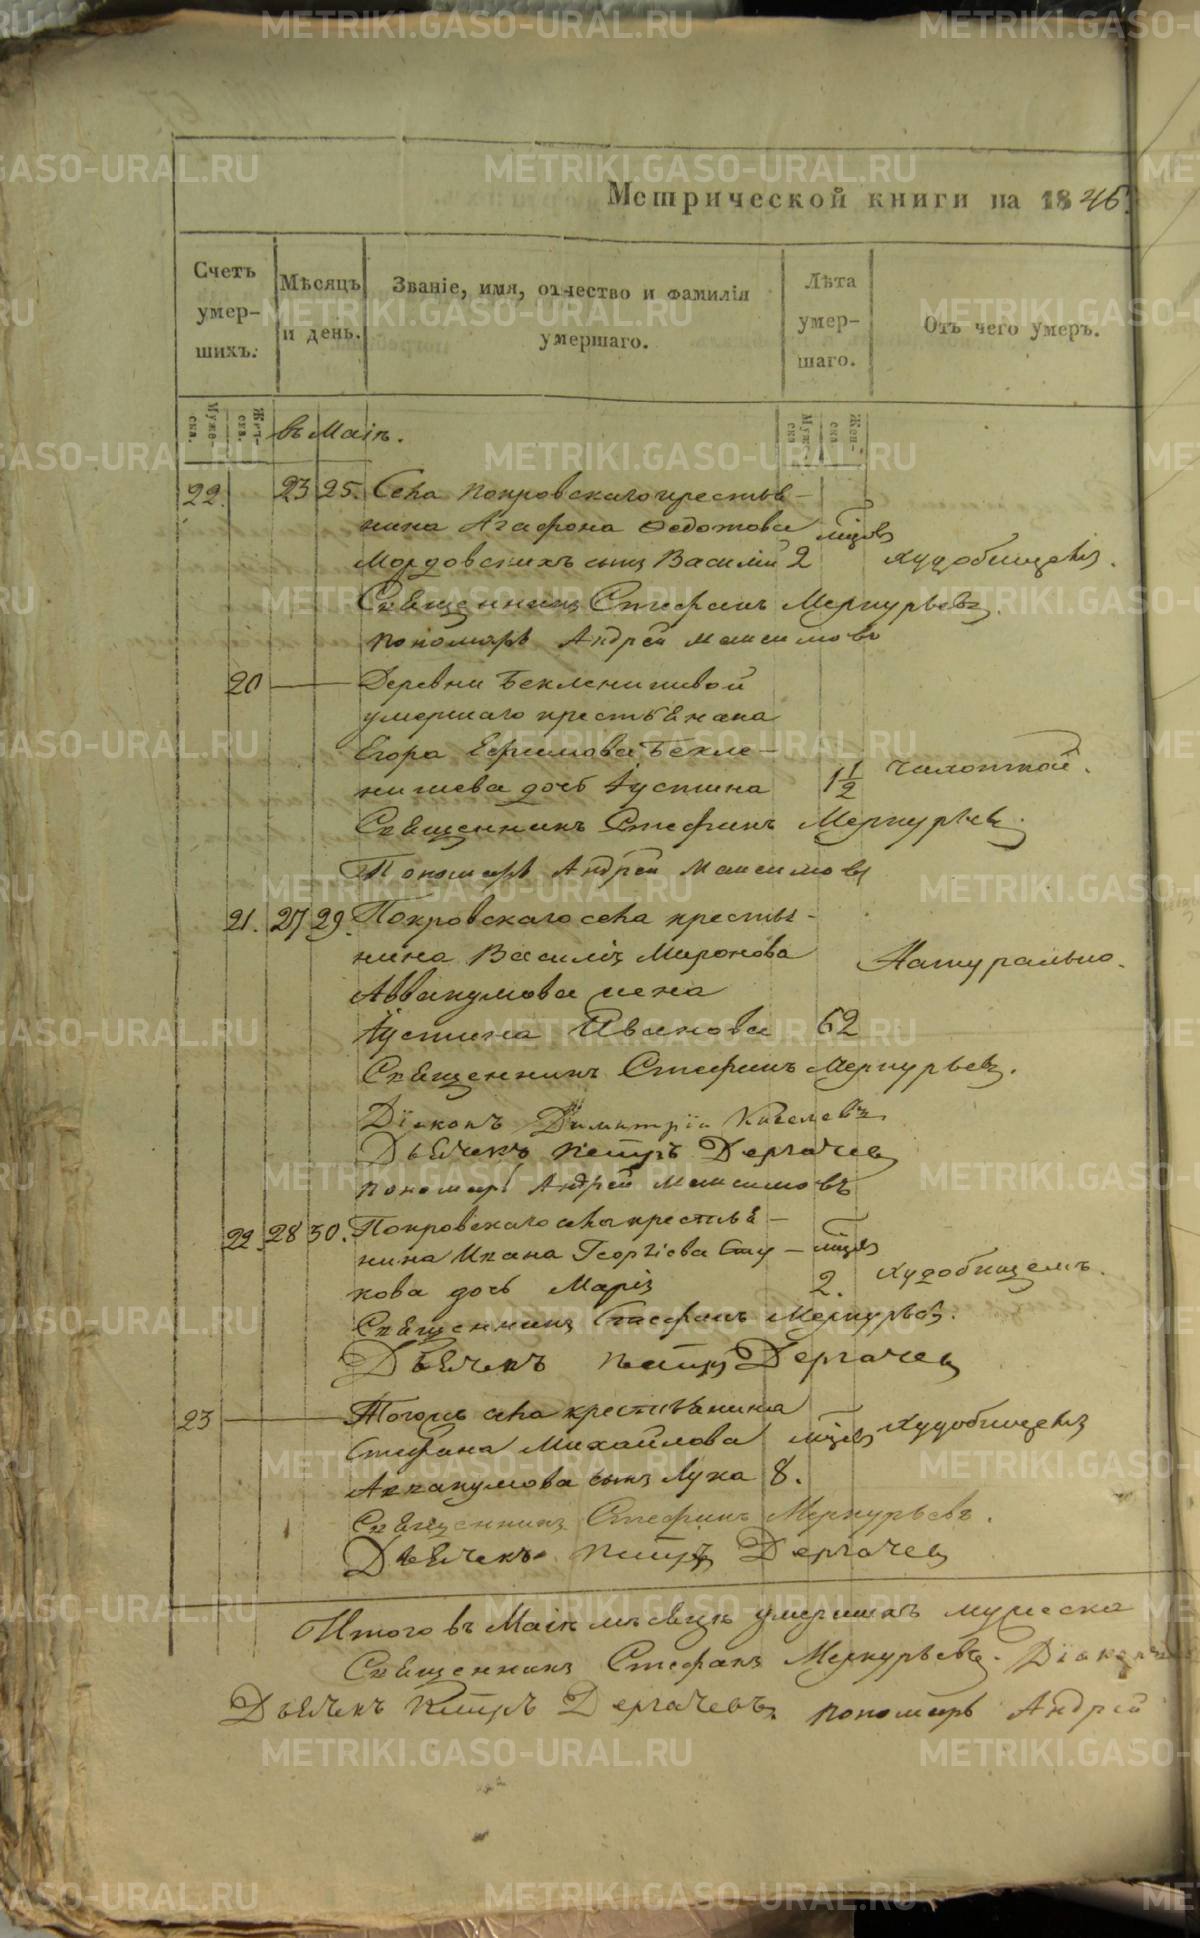 Метрической книги на 1846.
Счетъ умер-шихъ.
Мѣсяцъ и день.
Званіе, имя, отчество и фамилія умершаго.
Лѣта умер-шаго.
Отъ чего умеръ.
Муже-ска.
Жен-ска.
въ Маіѣ.
Муже-ска
Жен-ска
22. 23 25. Села Покровскаго крестья-
нина Агафона Федотова
Мордовскихъ сынъ Василій 2 мѣсяцовъ худобищемъ.
Священникъ Стефанъ Меркурьевъ.
Пономарь Андрей Максимовъ
20 Деревни Бекленищевой
умершаго крестьянана
Егора Ефимова Бекле-
нищева дочь Іустина 1 1/2 чахоткой.
Священникъ Стефанъ Меркурьевъ.
Пономарь Андрей Максимовъ
21. 27 29. Покровскаго села крестья-
нина Василія Миронова Натурально.
Аввакумова жена
Іустина Иванова 62
Священникъ Стефанъ Меркурьевъ.
Діаконъ Димитрій Киселевъ
Дьячекъ Петръ Дергачевъ
Пономарь Андрей Максимовъ
22. 28 30. Покровскаго села крестья-
нина Ивана Георгіева Сту- мѣсяцовъ
кова дочь Марія 2. худобищемъ.
Священникъ Стефанъ Меркурьевъ.
Дьячекъ Петръ Дергачевъ
23 Тогожъ села крестьянина
Стефана Михайлова мѣсяцовъ худобищемъ
Аввакумова сынъ Лука 8.
Священникъ Стефанъ Меркурьевъ.
Дьячекъ Петръ Дергачевъ
Итого въ Маіѣ мѣсяцѣ умершихъ мужеска
Священникъ Стефанъ Меркурьевъ. Діаконъ
Дьячекъ Петръ Дергачевъ. пономарь Андрей
METRIKI.GASO-URAL.RU